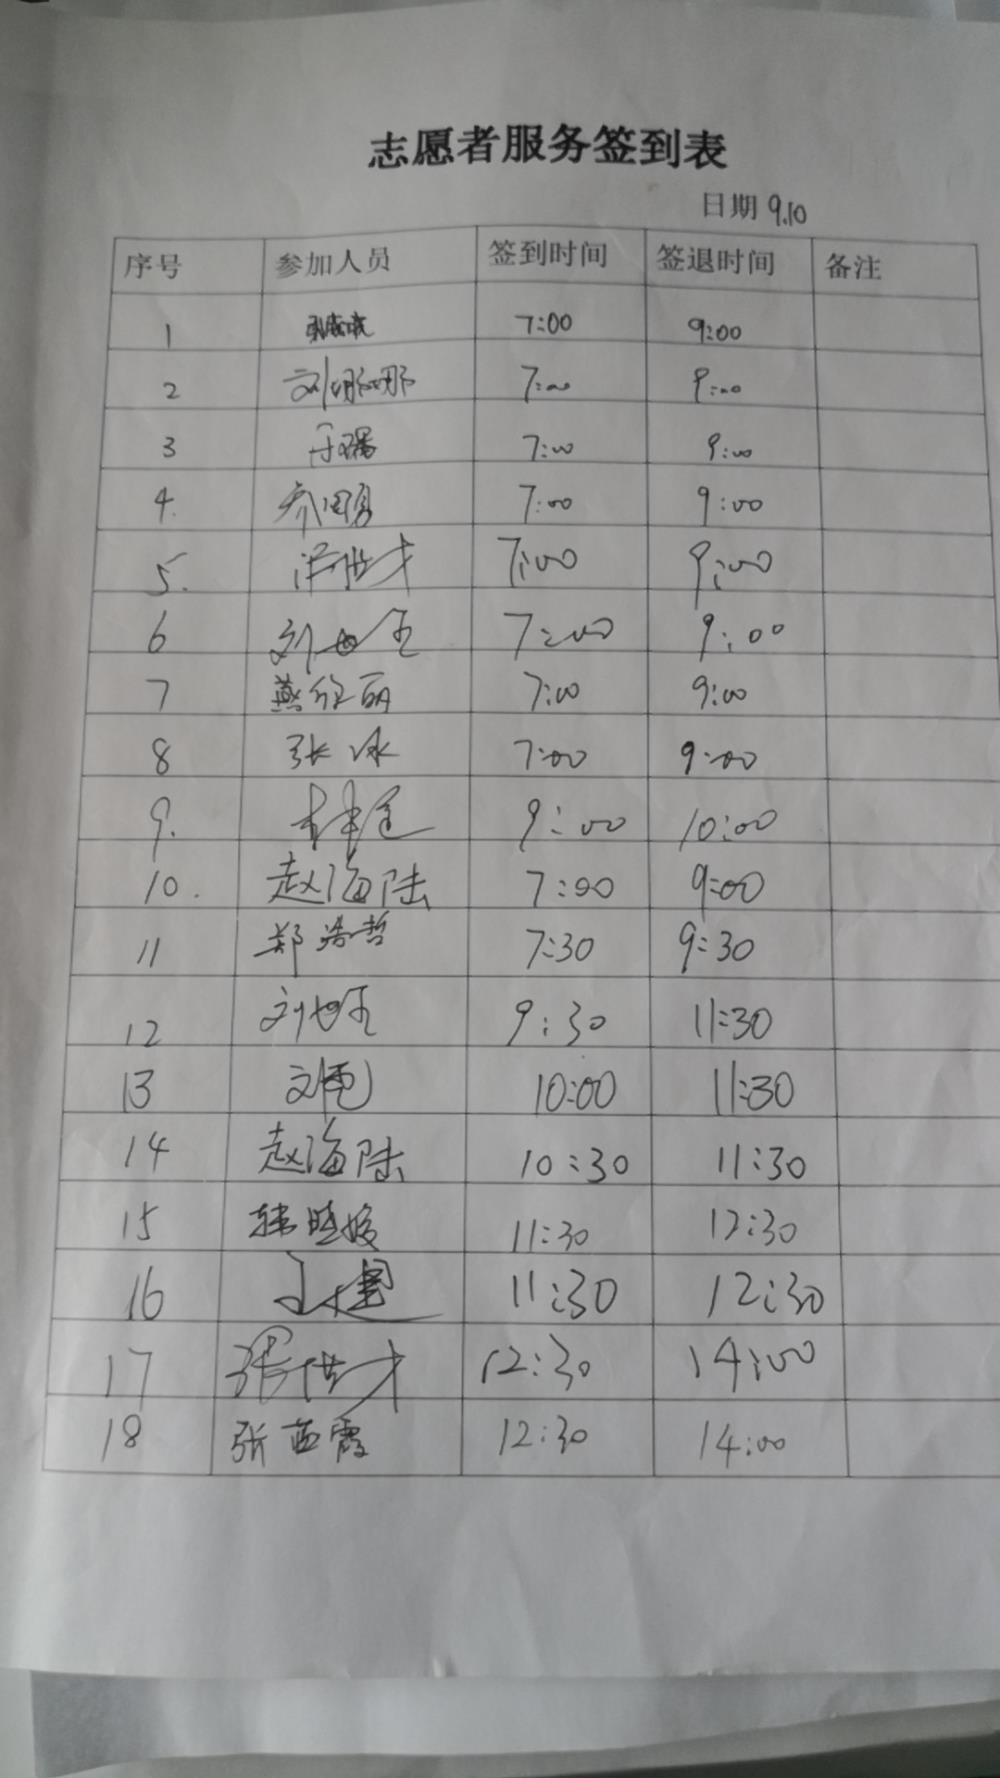 志愿者服务签到表
日期 9.10
序号 参加人员 签到时间 签退时间 备注
1 7:00 9:00
2 刘娜娜 7:00 9:00
3 于瑞 7:00 9:00
4. 乔国勇 7:00 9:00
5. 7:00 9:00
6 刘世玉 7:00 9:00
7 燕俊丽 7:00 9:00
8 张冰 7:00 9:00
9. 9:00 10:00
10. 赵海陆 7:00 9:00
11 郑浩哲 7:30 9:30
12 刘世玉 9:30 11:30
13 10:00 11:30
14 赵海陆 10:30 11:30
15 韩晓媛 11:30 12:30
16 王建 11:30 12:30
17 12:30 14:00
18 张蓝霞 12:30 14:00